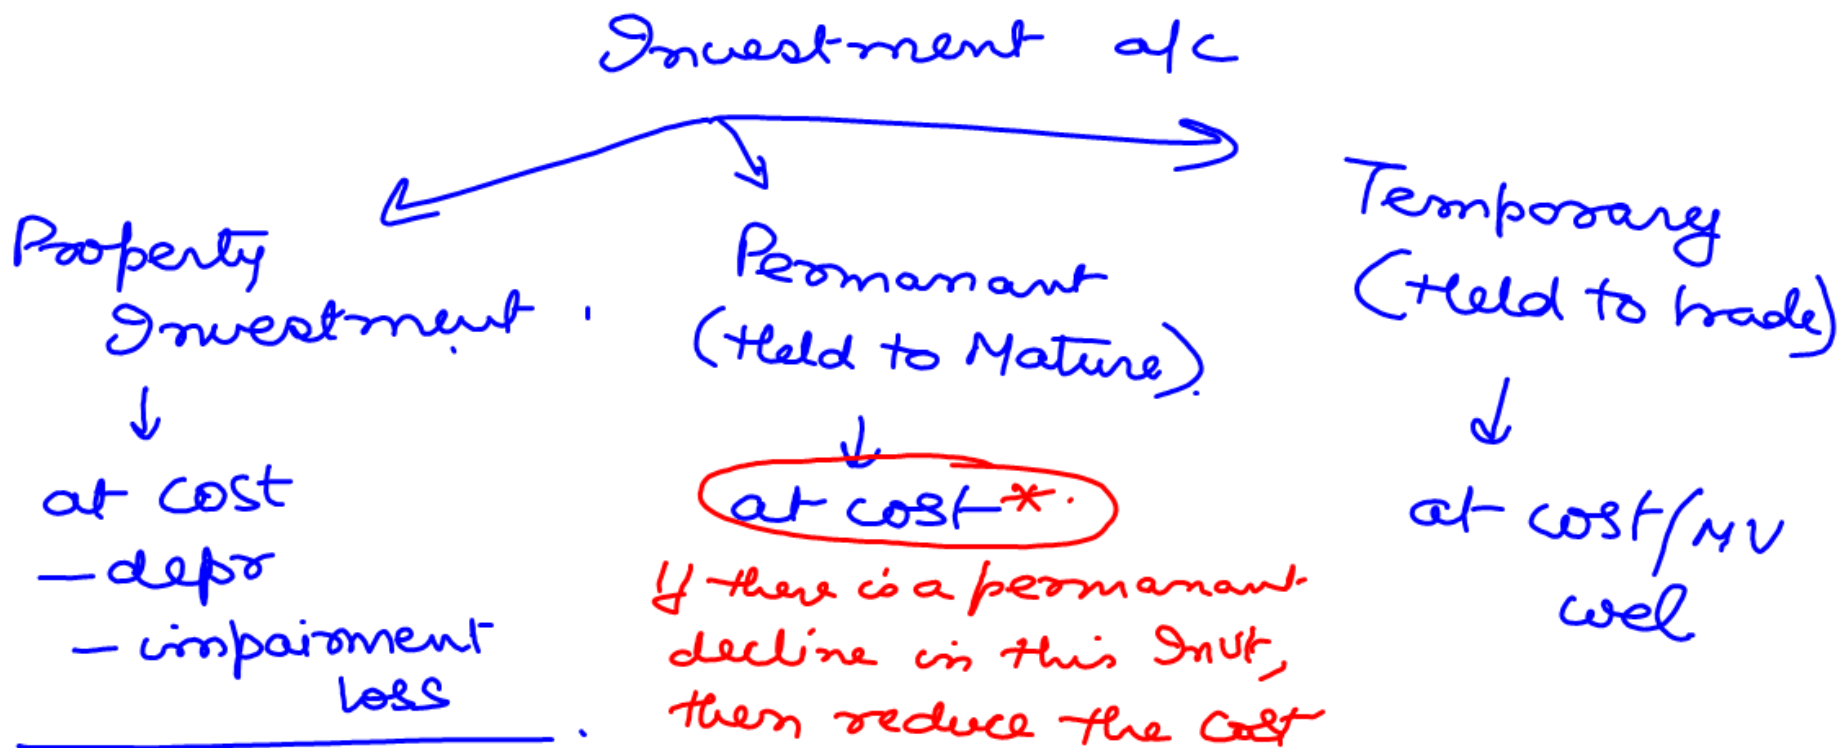 Investment a/c
Property
Investment.
at cost
- depr
- impairment
loss
Permanant
(Held to Mature)
at cost*
If there is a permanant
decline in this Invt,
then reduce the cost
Temporary
(Held to trade)
at cost/MV
wel